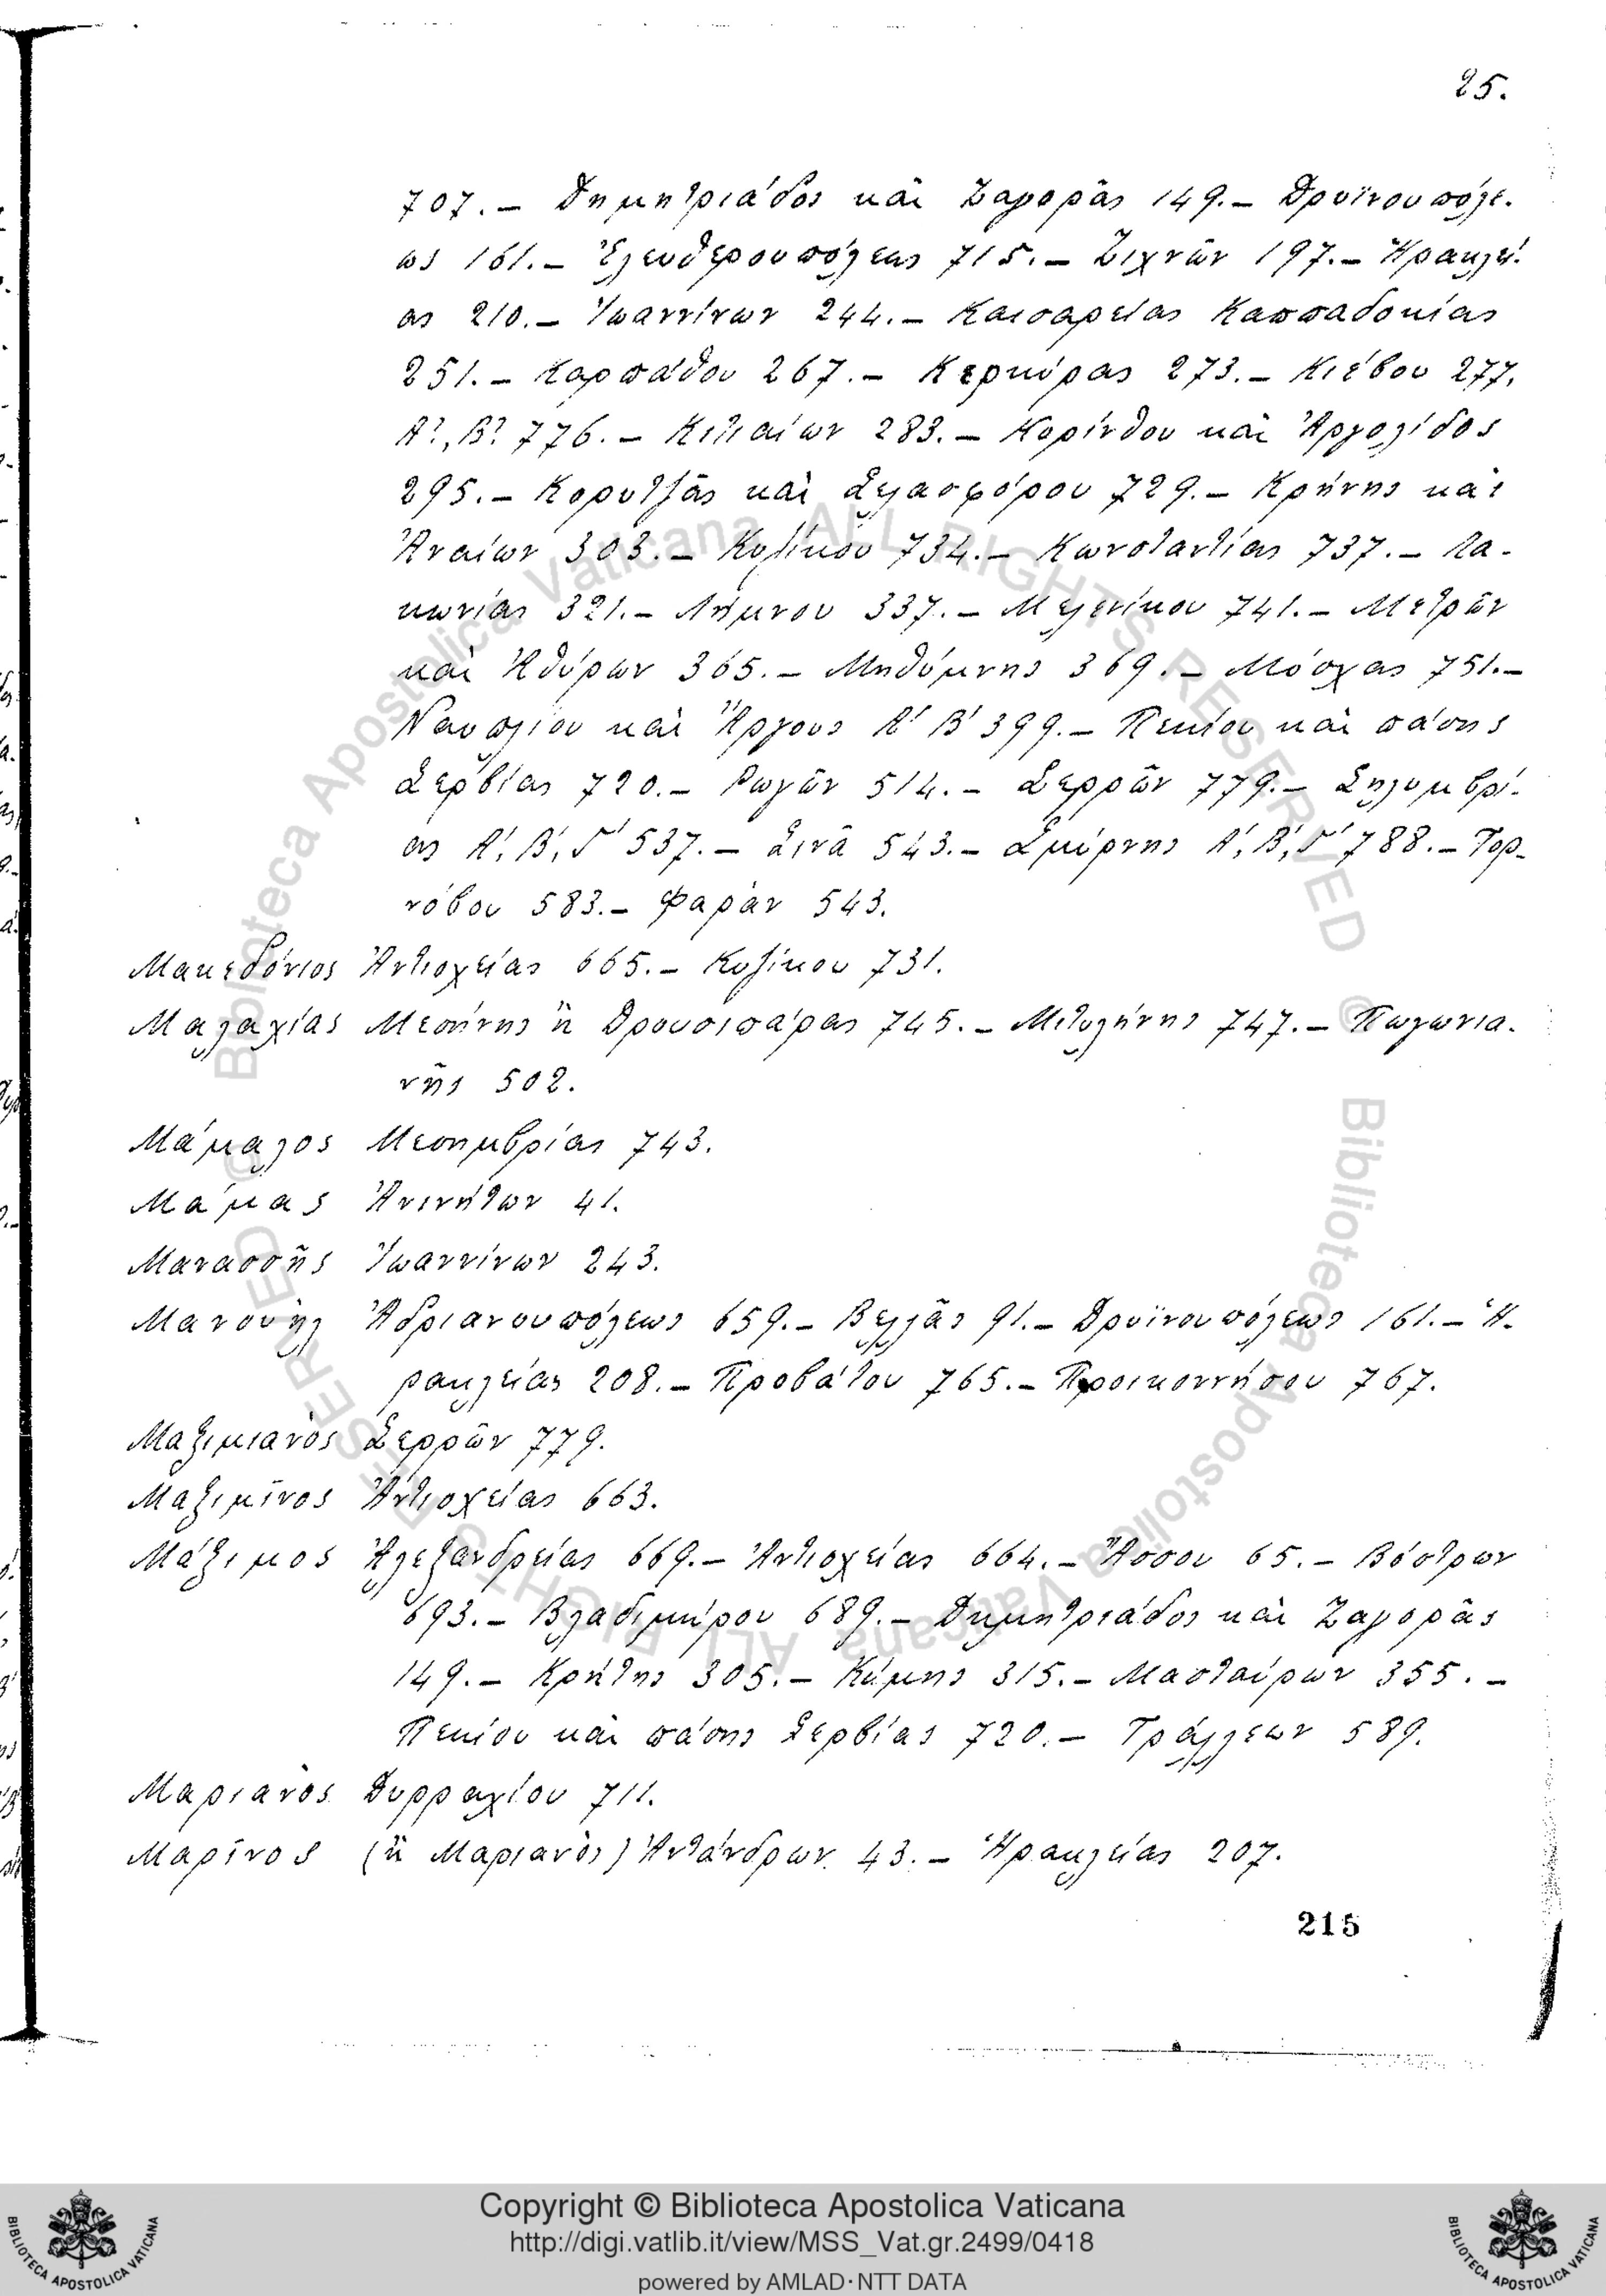 25.
707.— Δημητριάδος καὶ Ζαγορᾶς 149.— Δρυϊνουπόλε-
ως 161.— Ἐλευθερουπόλεως 715.— Ζιχνῶν 197.— Ἡρακλεί-
ας 210.— Ἰωαννίνων 244.— Καισαρείας Καππαδοκίας
251.— Καρπάθου 267.— Κερκύρας 273.— Κιέβου 277,
Α?, Β? 776.— Κιτιαίων 283.— Κορίνθου καὶ Ἀργολίδος
295.— Κορυτζᾶς καὶ Σελασφόρου 729.— Κρήνης καὶ
Ἀναίων 303.— Κυζίκου 734.— Κωνσταντίας 737.— Λα-
κωνίας 321.— Λήμνου 337.— Μελενίκου 741.— Μετρῶν
καὶ Ἀθύρων 365.— Μηθύμνης 369.— Μόσχας 751.—
Ναυπλίου καὶ Ἄργους Α' Β' 399.— Πεκίου καὶ πάσης
Σερβίας 720.— Ρωγῶν 514.— Σερρῶν 779.— Σηλυμβρί-
ας Α', Β', Γ' 537.— Σινᾶ 543.— Σμύρνης Α', Β', Γ' 788.— Τορ-
νόβου 583.— Φαρὰν 543.
Μακεδόνιος Ἀντιοχείας 665.— Κυζίκου 731.
Μαλαχίας Μεσήνης ἢ Δρουσιπάρας 745.— Μιτυλήνης 747.— Πωγωνια-
νῆς 502.
Μάμαλος Μεσημβρίας 743.
Μάμας Ἀνινήτων 41.
Μανασσῆς Ἰωαννίνων 243.
Μανουὴλ Ἀδριανουπόλεως 659.— Βελλᾶς 91.— Δρυϊνουπόλεως 161.— Ἡ-
ρακλείας 208.— Προβάτου 765.— Προικοννήσου 767.
Μαξιμιανὸς Σερρῶν 779.
Μαξιμῖνος Ἀντιοχείας 663.
Μάξιμος Ἀλεξανδρείας 669.— Ἀντιοχείας 664.— Ἄσσου 65.— Βόστρων
693.— Βλαδιμήρου 689.— Δημητριάδος καὶ Ζαγορᾶς
149.— Κρήτης 305.— Κύμης 315.— Μασταύρων 355.—
Πεκίου καὶ πάσης Σερβίας 720.— Τράλλεων 589.
Μαριανὸς Δυρραχίου 711.
Μαρῖνος (ἢ Μαριανὸς) Ἀντάνδρων 43.— Ἡρακλείας 207.
215
Copyright © Biblioteca Apostolica Vaticana
http://digi.vatlib.it/view/MSS_Vat.gr.2499/0418
powered by AMLAD·NTT DATA